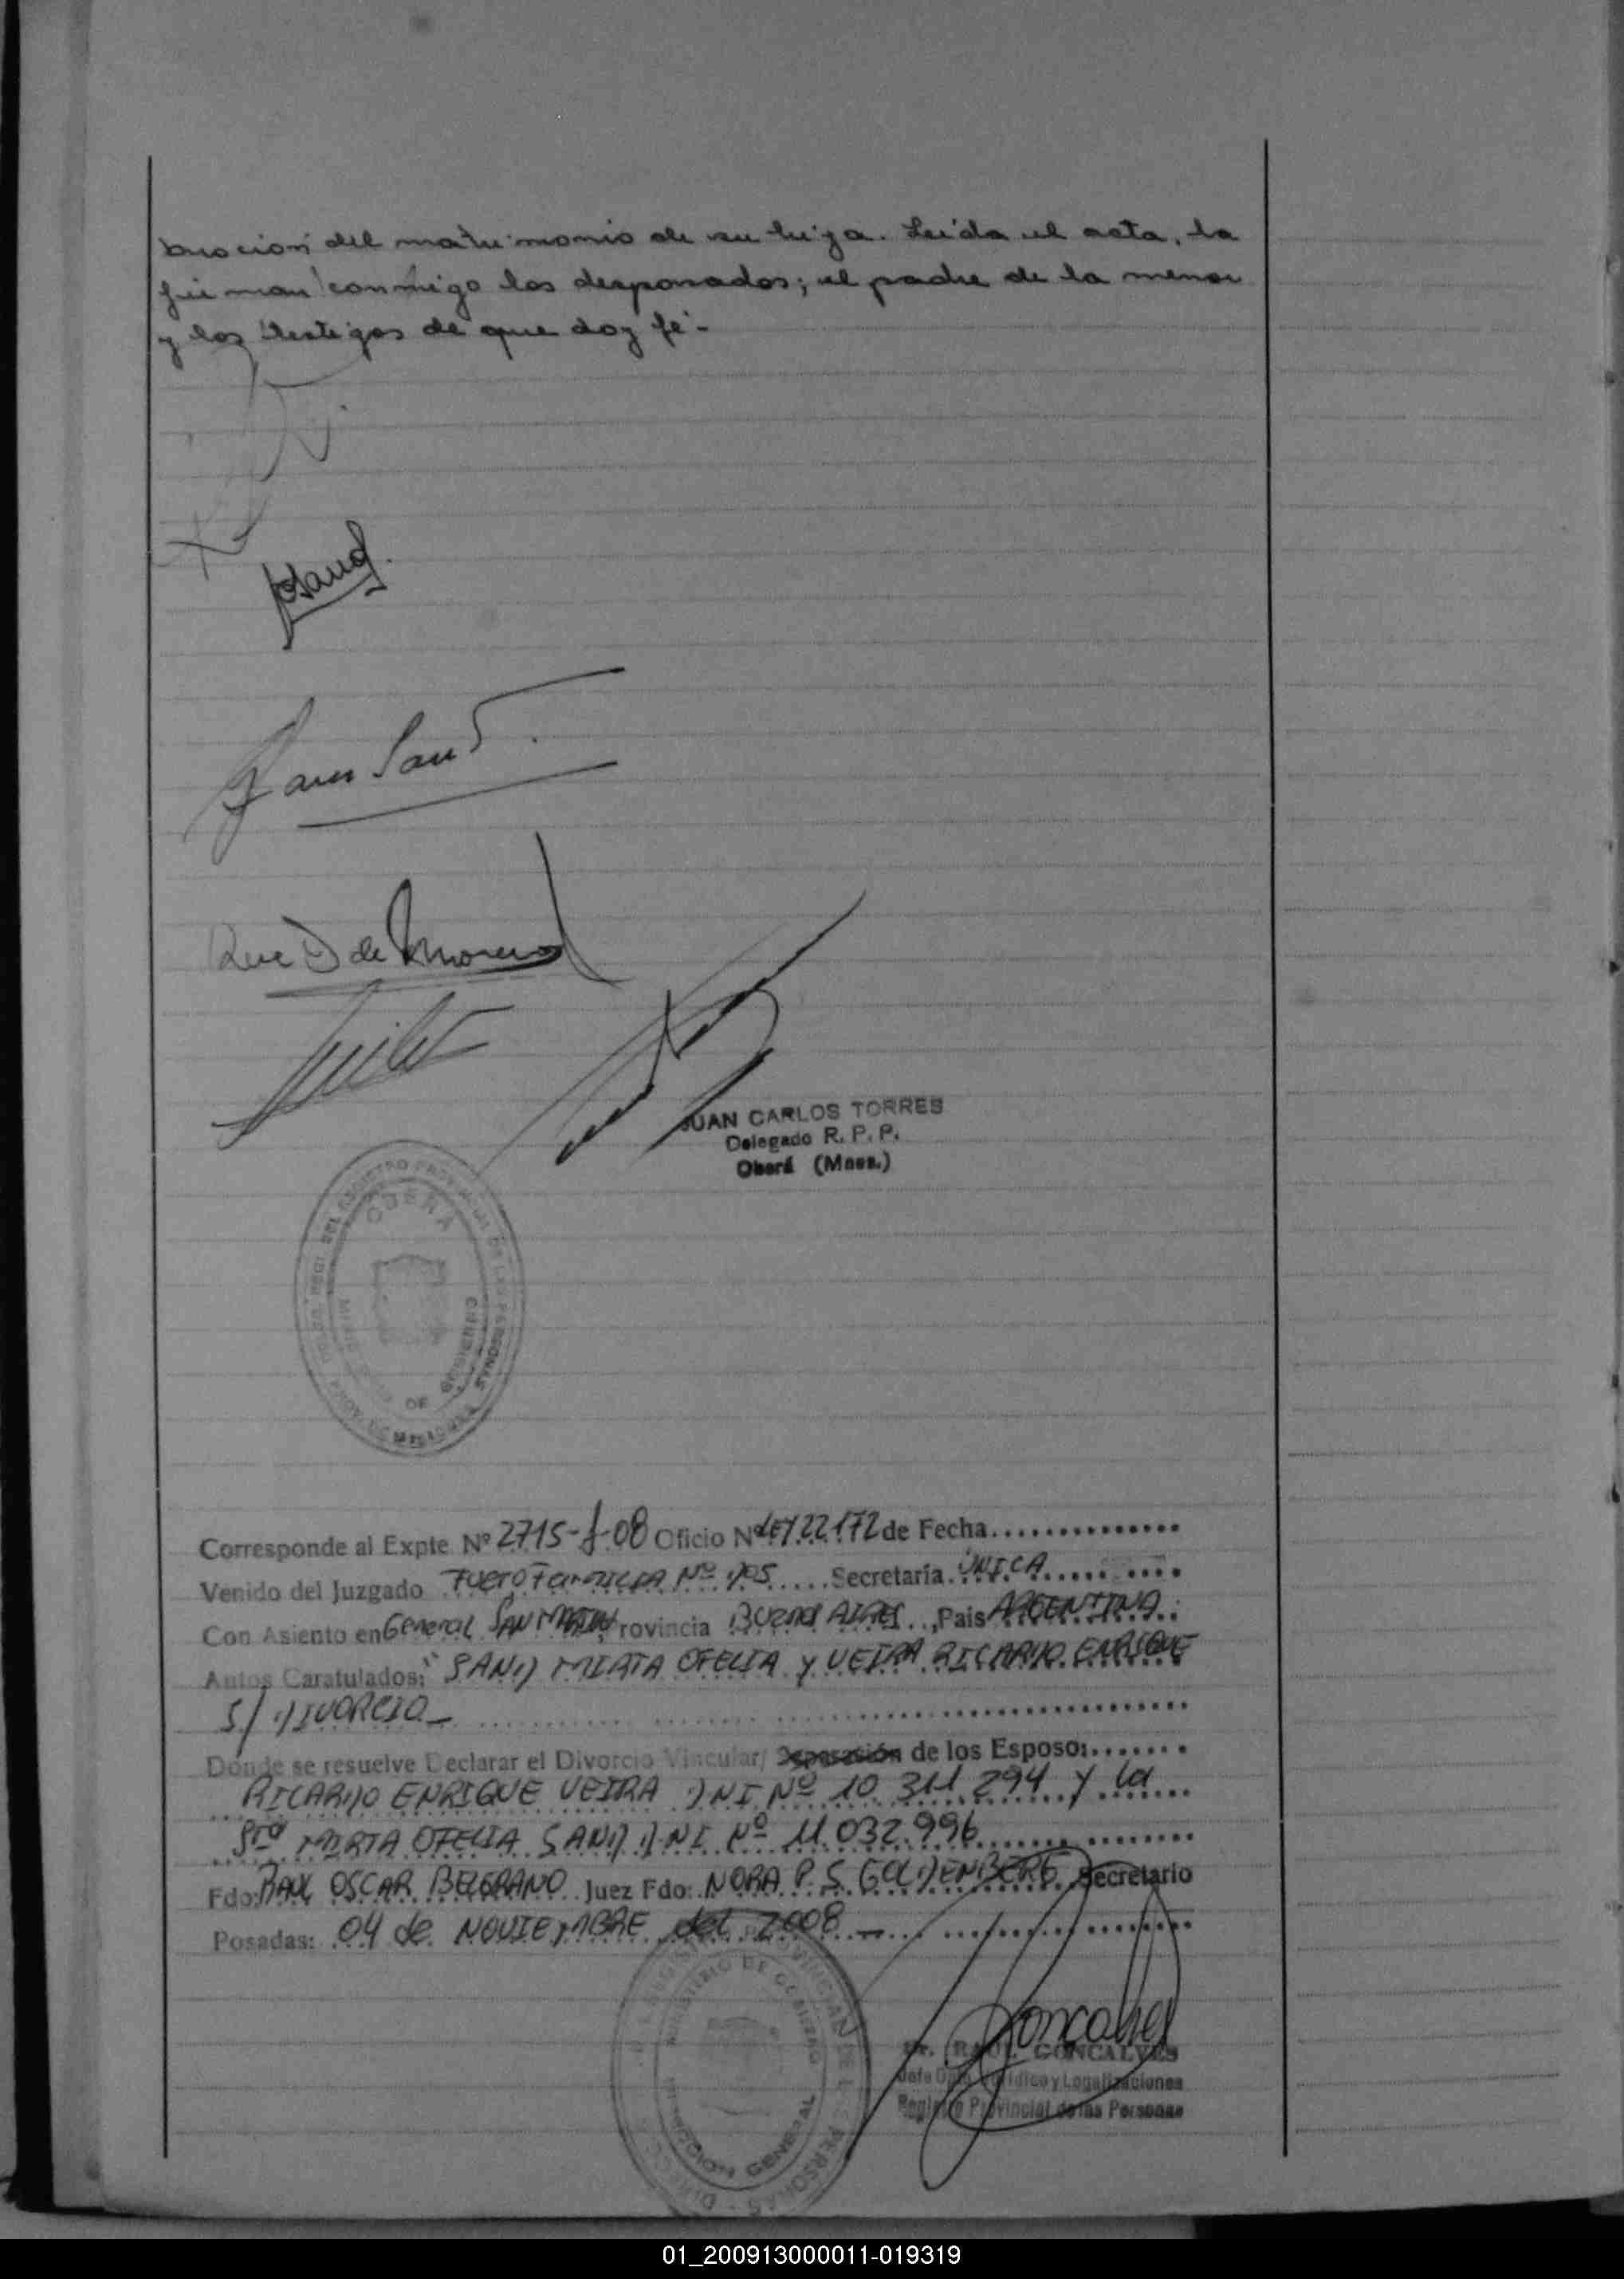 bración del matrimonio de su hija. Leída el acta, la
firman conmigo los desposados; el padre de la menor
y los testigos de que doy fé.-
JUAN CARLOS TORRES
Delegado R. P. P.
Oberá (Mnes.)
OBERÁ
Corresponde al Expte. Nº 2715-f-08 Oficio Nº LEY 22172 de Fecha..............
Venido del Juzgado Fuero Familia Nº 1/05 ..... Secretaría. ÚNICA..........
Con Asiento en General SAN MARTIN Provincia BUENOS AIRES..,Pais ARGENTINA.
Autos Caratulados: "SAND MIRTA OFELIA y VEIRA RICARDO ENRIQUE
S/ DIVORCIO_
Dónde se resuelve Declarar el Divorcio Vincular/ Separación de los Esposo:.......
RICARDO ENRIQUE VEIRA DNI Nº 10.311.294 y la
Srª MIRTA OFELIA SAND D.N.I. Nº 11.032.996
Fdo: RAUL OSCAR BELGRANO Juez Fdo: NORA P. S. GOLDENBERG Secretario
Posadas: 04 de NOVIEMBRE del 2008_
MINISTERIO DE GOBIERNO
DIRECCION GENERAL
Dr. RAUL GONCALVES
Jefe Dpto. Jurídico y Legalizaciones
Registro Provincial de las Personas
01_200913000011-019319